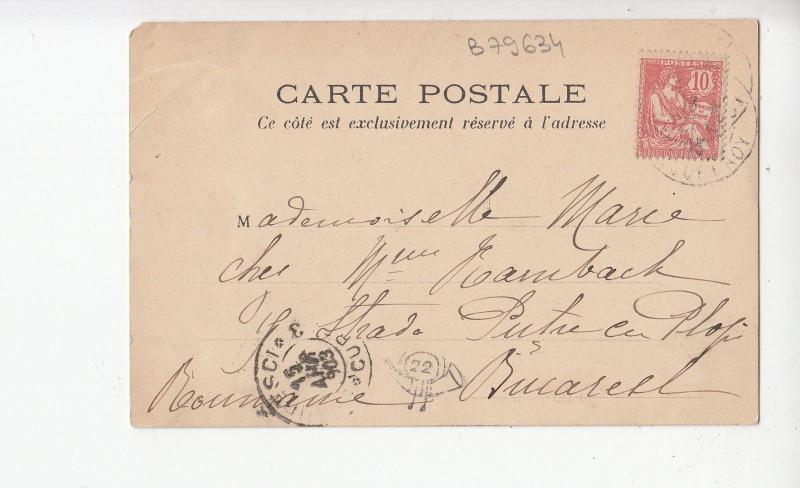 B79634
CARTE POSTALE
Ce côté est exclusivement réservé à l'adresse
POSTES
10
Mademoiselle Marie
chez Mme Rambach
Strada Putu cu Plopi
Roumanie Bucarest
BUCURESCI
3
15
903
22